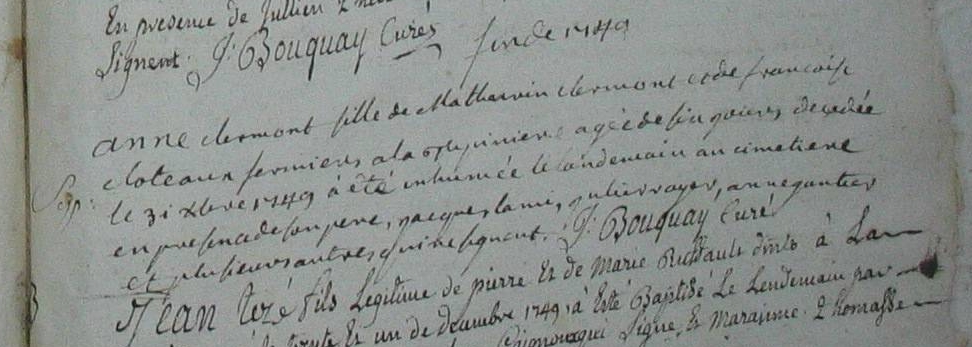 En presence de Jullien
Signent. J. Bouquay Curé fin de 1749
anne clermont fille de Mathurin clermont et de francoise
cloteaux fermiers a la pepiniere agée de six jours decedée
Sep: le 31 xbre 1749 à été inhumée le landemain au cimetiere
en presence de son pere, jacques lami, julien royer, anne gautier
et plusieurs autres qui ne signent. J. Bouquay Curé
Jean fils Legitime de pierre Et de Marie à La
trente Et un de decembre 1749, à Esté Baptisé Le Lendemain par
Signe, Et